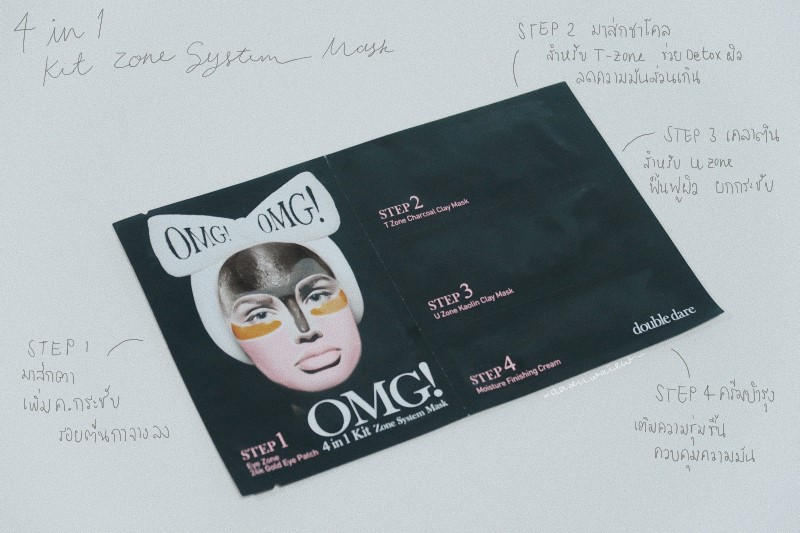 4 in 1
Kit zone System Mask
STEP 2 มาส์กชาโคล
สำหรับ T-zone ช่วย Detox ผิว
ลดความมันส่วนเกิน
STEP 3 เคลาติน
สำหรับ U zone
ฟื้นฟูผิว ยกกระชับ
OMG! OMG!
STEP 2
T Zone Charcoal Clay Mask
STEP 3
U Zone Kaolin Clay Mask
double dare
STEP 4
Moisture Finishing Cream
OMG!
4 in 1 Kit Zone System Mask
STEP 1
Eye Zone
24k Gold Eye Patch
STEP 1
มาส์กตา
เพิ่มค.กระชับ
รอยตีนกาจางลง
STEP 4 ครีมบำรุง
เติมความชุ่มชื้น
ควบคุมความมัน